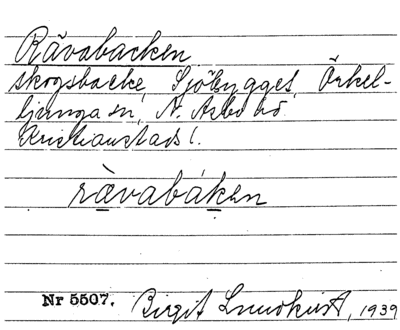 Rävabacken
skogsbacke, Sjöbygget, Örkel-
ljunga sn, N. Åsbo hd
Kristianstads l.
rävabáken
Nr 5507. Birgit Lundkvist, 1939